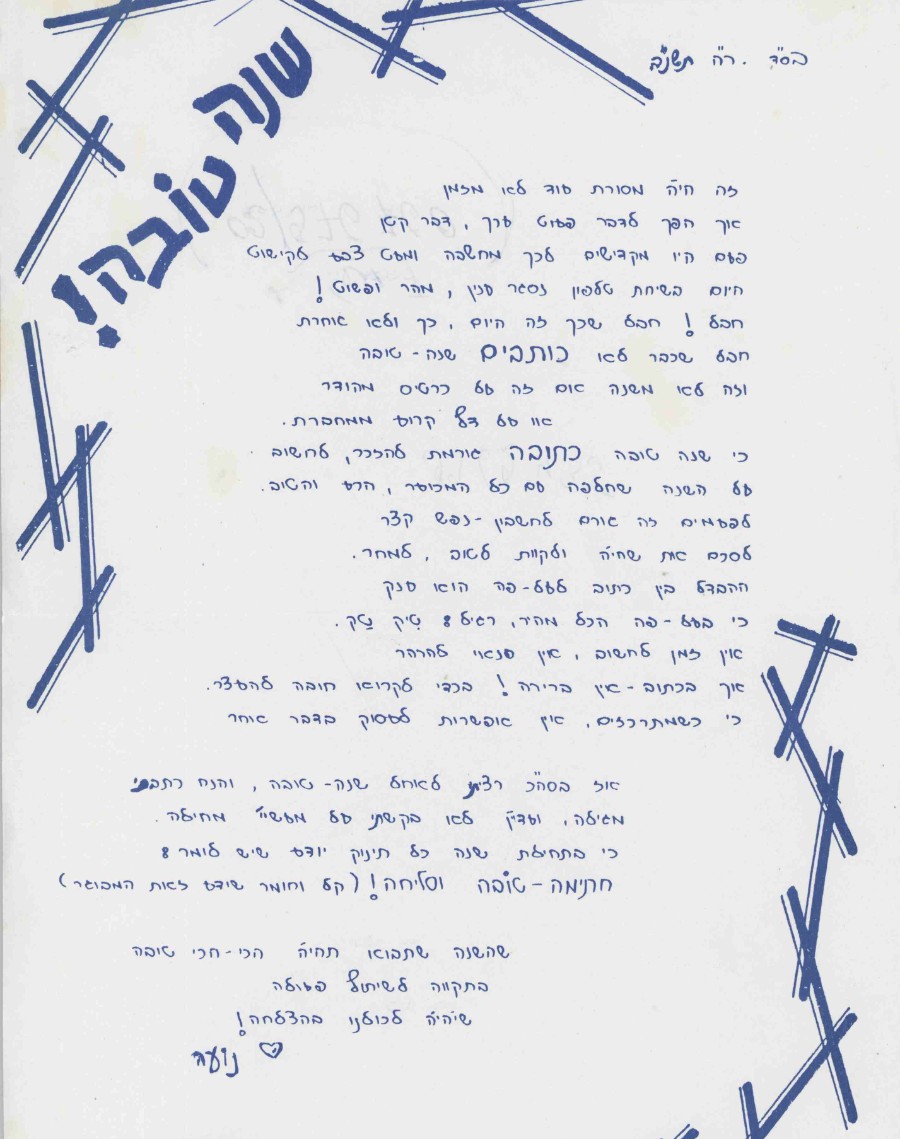 בס"ד . ר"ה תשנ"ב
שנה
טובה!
זה היה מסורת עוד לא מזמן
אך הפך לדבר פעוט ערך, דבר קטן
פעם היו מקדישים לכך מחשבה ומעט צבע לקישוט
היום בשיחת טלפון נסגר ענין, מהר ופשוט!
חבל! חבל שכך זה היום, כך ולא אחרת
חבל שכבר לא כותבים שנה-טובה
וזה לא משנה אם זה על כרטיס מהודר
או על דף קרוע ממחברת.
כי שנה טובה כתובה גורמת להזכר, לחשוב
על השנה שחלפה עם כל המכוער, הרע והטוב.
לפעמים זה גורם לחשבון-נפש קצר
לסכם את שהיה ולקוות לטוב, למחר.
ההבדל בין כתוב לעל-פה הוא ענק
כי בעל-פה הכל מהיר, רגיל: טיק טק.
אין זמן לחשוב, אין פנאי להרהר
אך בכתוב-אין ברירה! בכדי לקרוא חובה להעצר.
כי כשמתרכזים, אין אפשרות לעסוק בדבר אחר
אז בסה"כ רציתי לאחל שנה-טובה, והנה כתבתי
מגילה, ועדיין לא בקשתי על מעשיי מחילה.
כי בתחילת שנה כל תינוק יודע שיש לומר:
חתימה-טובה וסליחה! (קל וחומר שידע זאת המבוגר)
שהשנה שתבוא תהיה הכי-הכי טובה
בתקווה לשיתוף פעולה
שיהיה לכולנו בהצלחה!
נועה